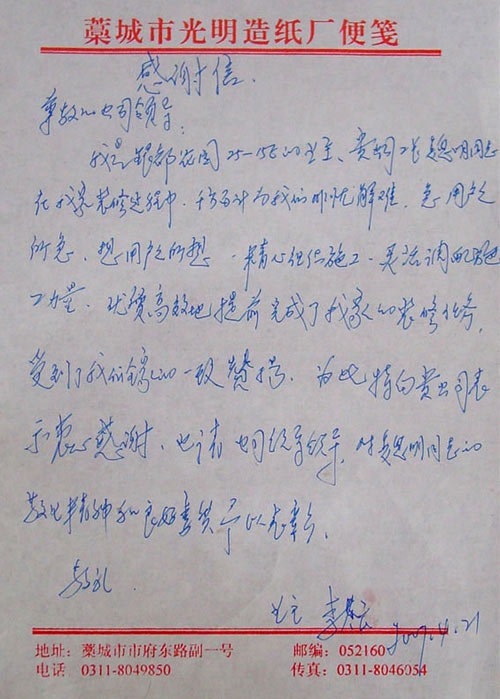 藁城市光明造纸厂便笺
感谢信.
尊敬的公司领导:
我是银都花园25-15E的业主、贵公司工长 思明同志
在我家装修过程中、千方百计为我们排忧解难、急用户
所急、想用户所想、精心组织施工、灵活调配施
工力量、优质高效地提前完成了我家的装修任务,
受到了我们全家的一致赞扬、为此特向贵公司表
示衷心感谢、也请公司领导, 对 思明同志的
敬业精神和良好素质予以表彰。
敬礼
业主 李 2007.4.21
地址: 藁城市市府东路副一号 邮编: 052160
电话 0311-8049850 传真: 0311-8046054